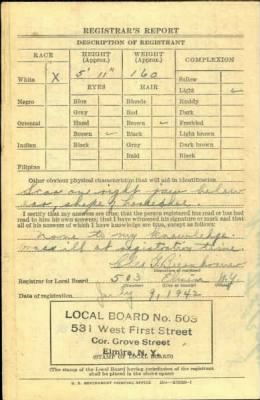 REGISTRAR'S REPORT
DESCRIPTION OF REGISTRANT
RACE HEIGHT (Approx.) WEIGHT (Approx.) COMPLEXION
White X 5' 11" 160 Sallow
EYES HAIR Light ✓
Negro Blue Blonde Ruddy
Gray Red Dark
Oriental Hazel Brown ✓ Freckled
Brown ✓ Black Light brown
Indian Black Gray Dark brown
Bald Black
Filipino
Other obvious physical characteristics that will aid in identification
Scar on right jaw below
ear, shape of horseshoe.
I certify that my answers are true; that the person registered has read or has had
read to him his own answers; that I have witnessed his signature or mark and that
all of his answers of which I have knowledge are true, except as follows:
None to my knowledge
ill at registration time
(Signature of registrar)
Registrar for Local Board 503 Elmira N.Y.
Date of registration July 9, 1942
LOCAL BOARD No. 503
531 West First Street
Cor. Grove Street
Elmira, N. Y.
(STAMP OF LOCAL BOARD)
(The stamp of the Local Board having jurisdiction of the registrant
shall be placed in the above space)
U. S. GOVERNMENT PRINTING OFFICE